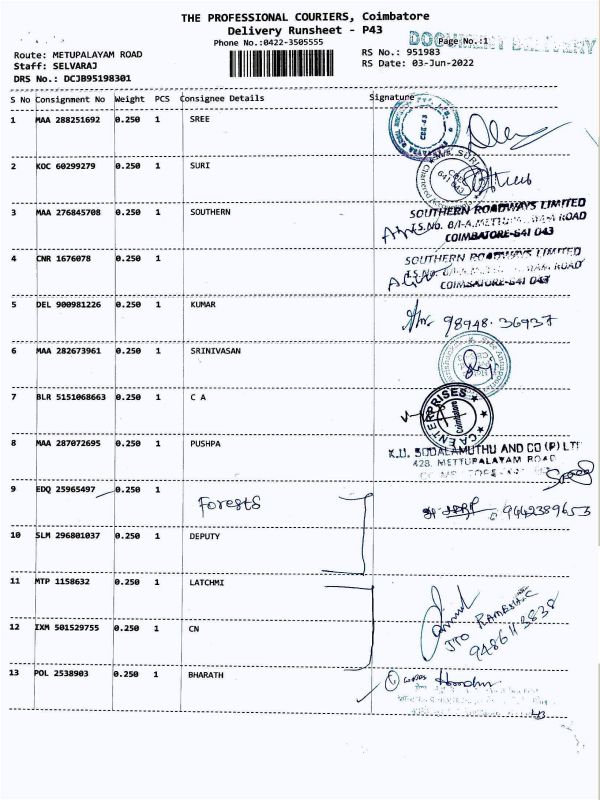 THE PROFESSIONAL COURIERS, Coimbatore
Delivery Runsheet - P43
Phone No.:0422-3505555
DOCUMENT DELIVERY
Page No.:1
Route: METUPALAYAM ROAD
RS No.: 951983
Staff: SELVARAJ
RS Date: 03-Jun-2022
DRS No.: DCJB95198301
S No Consignment No Weight PCS Consignee Details Signature
1 MAA 288251692 0.250 1 SREE
CBE-43
2 KOC 60299279 0.250 1 SURI
SURI
641 043
3 MAA 276845708 0.250 1 SOUTHERN
SOUTHERN ROADWAYS LIMITED
T.S.No. 8/1-A, METTUPALAYAM ROAD
COIMBATORE-641 043
4 CNR 1676078 0.250 1
SOUTHERN ROADWAYS LIMITED
COIMBATORE-641 043
5 DEL 900981226 0.250 1 KUMAR
98948 36937
6 MAA 282673961 0.250 1 SRINIVASAN
7 BLR 5151068663 0.250 1 C A
CA ENTERPRISES
Coimbatore
8 MAA 287072695 0.250 1 PUSHPA
K.U. SODALAMUTHU AND CO (P) LTD
428, METTUPALAYAM ROAD
9 EDQ 25965497 0.250 1 Forests
9442389653
10 SLM 296801037 0.250 1 DEPUTY
11 MTP 1158632 0.250 1 LATCHMI
12 IXM 501529755 0.250 1 CN
JTO
13 POL 2538903 0.250 1 BHARATH